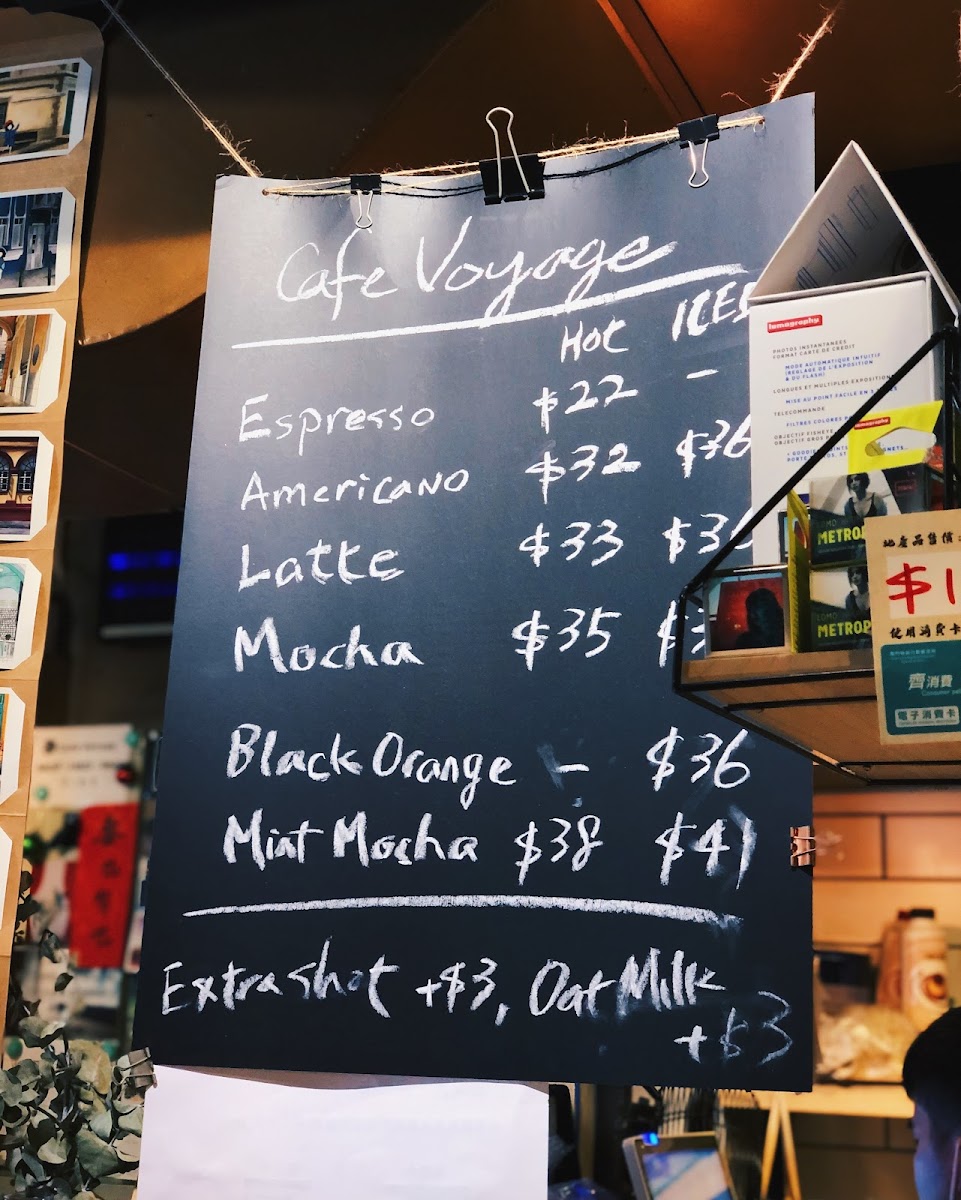 Cafe Voyage
Hot ICED
Espresso $22 -
Americano $32 $36
Latte $33
Mocha $35
Black Orange - $36
Mint Mocha $38 $41
Extra shot +$3, Oat Milk
+$3
lomography
PHOTOS INSTANTANÉES
FORMAT CARTE DE CRÉDIT
MODE AUTOMATIQUE INTUITIF
(RÉGLAGE DE L'EXPOSITION
& DU FLASH)
LONGUES ET MULTIPLES EXPOSITIONS
MISE AU POINT FACILE EN
TÉLÉCOMMANDE
FILTRES COLORÉS
OBJECTIF FISHEYE
OBJECTIF GROS
lomography
METROP
METROP
地產品售價
$1
使用消費卡
齊消費
電子消費卡